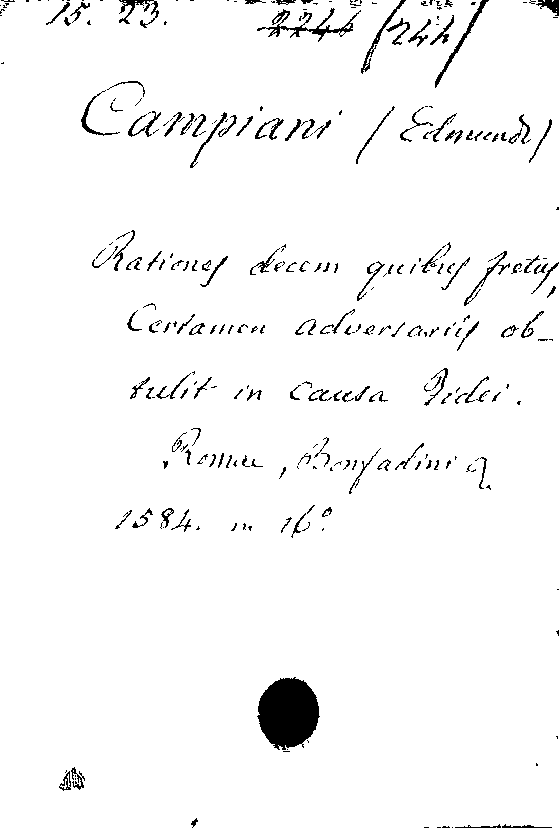 15. 23. 2244 /244/
Campiani (Edmundi)
Rationes decem quibus fretus,
Certamen adversariis ob-
tulit in causa Fidei.
Romae, Bonfadini
1584. in 16°